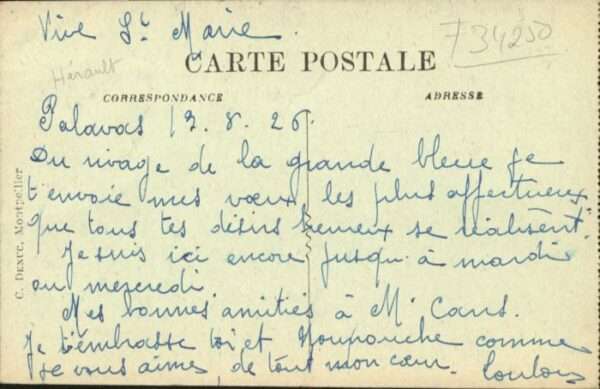 Vive Ste Marie.
734250
Hérault
CARTE POSTALE
CORRESPONDANCE
ADRESSE
C. DENUC, Montpellier
Palavas 13.8.26.
Du rivage de la grande bleue je
t'envoie mes vœux les plus affectueux
que tous tes désirs heureux se réalisent.
Je suis ici encore jusqu'à mardi
ou mercredi
Mes bonnes amitiés à Mr Caus.
Je t'embrasse toi et Moupouche comme
je vous aimes, de tout mon cœur. Loulou